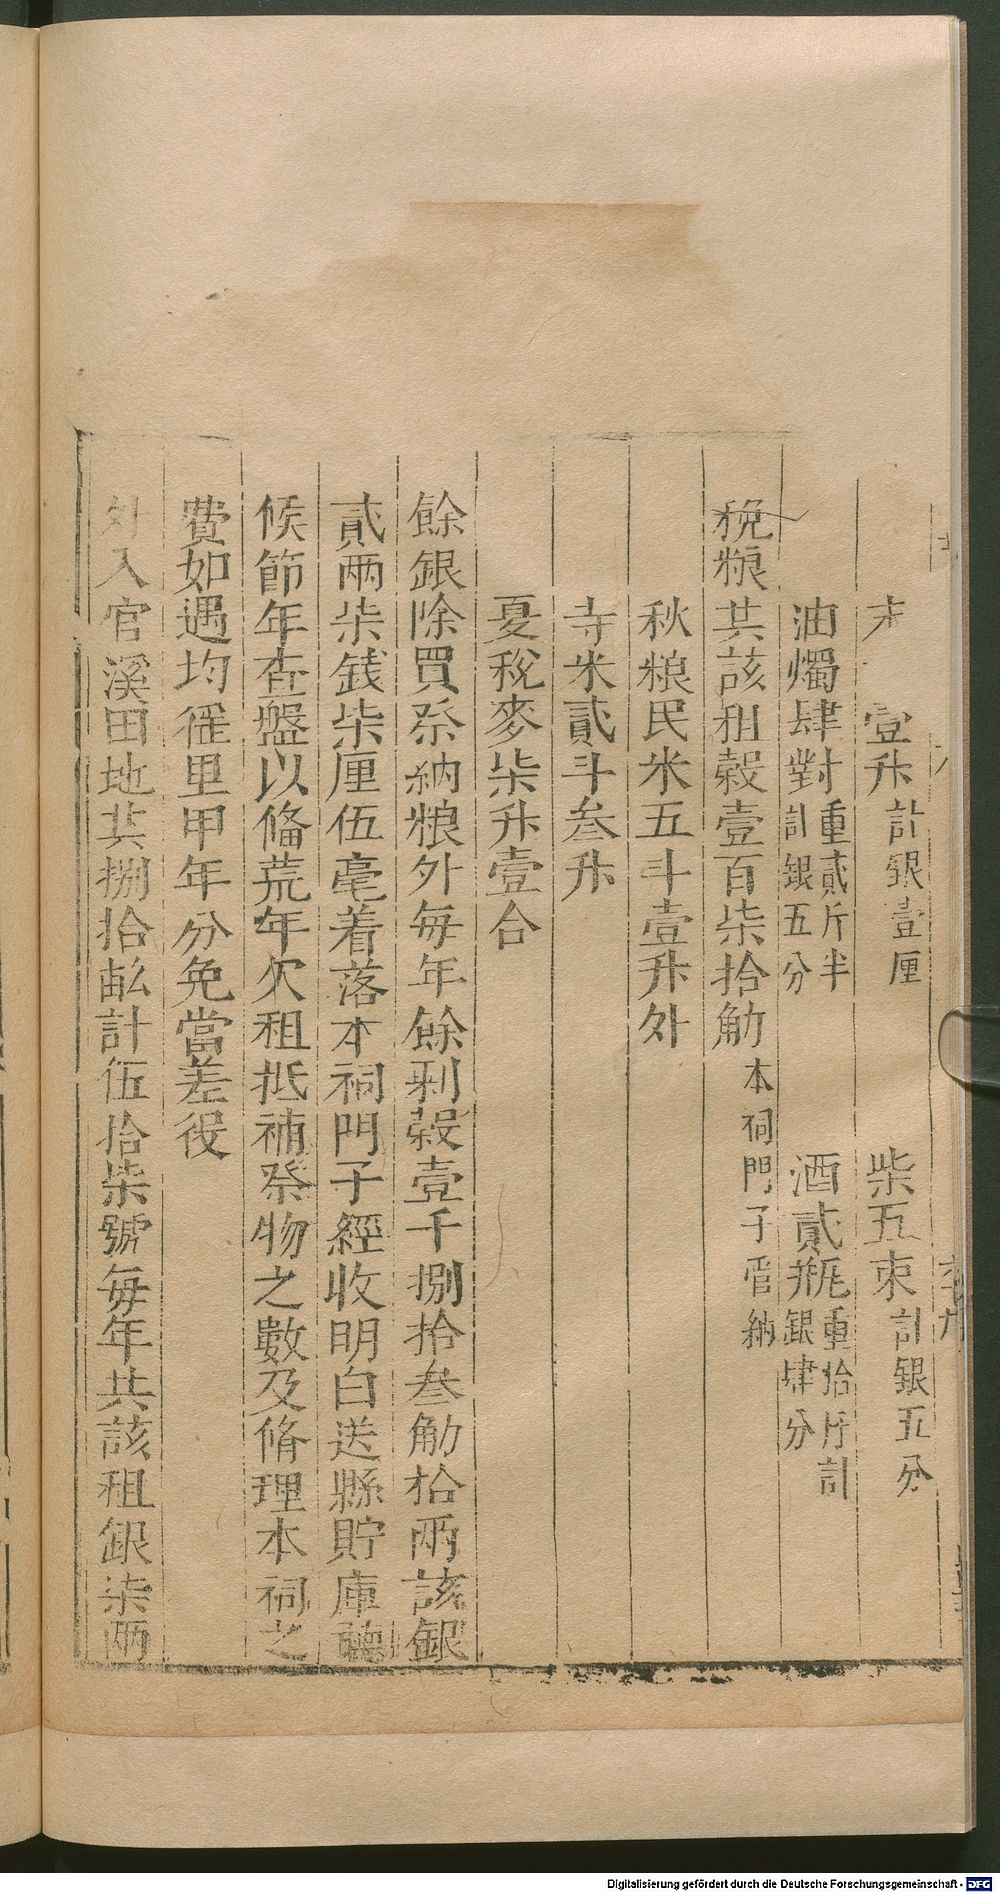 壹升計銀壹厘 柴五束計銀五分
油燭肆對重貳斤半計銀五分 酒貳瓶重拾斤計銀肆分
稅粮共該租穀壹百柒拾觔本祠門子管納
秋粮民米五斗壹升外
寺米貳斗叁升
夏稅麥柒升壹合
餘銀除買祭納粮外每年餘剰穀壹千捌拾叁觔拾兩該銀
貳兩柒錢柒厘伍毫着落本祠門子經收明白送縣貯庫聽
候節年查盤以俻荒年欠租抵補祭物之數及脩理本祠之
費如遇均徭里甲年分免當差役
外入官溪田地共捌拾畆計伍拾柒號每年共該租銀柒兩
Digitalisierung gefördert durch die Deutsche Forschungsgemeinschaft - DFG